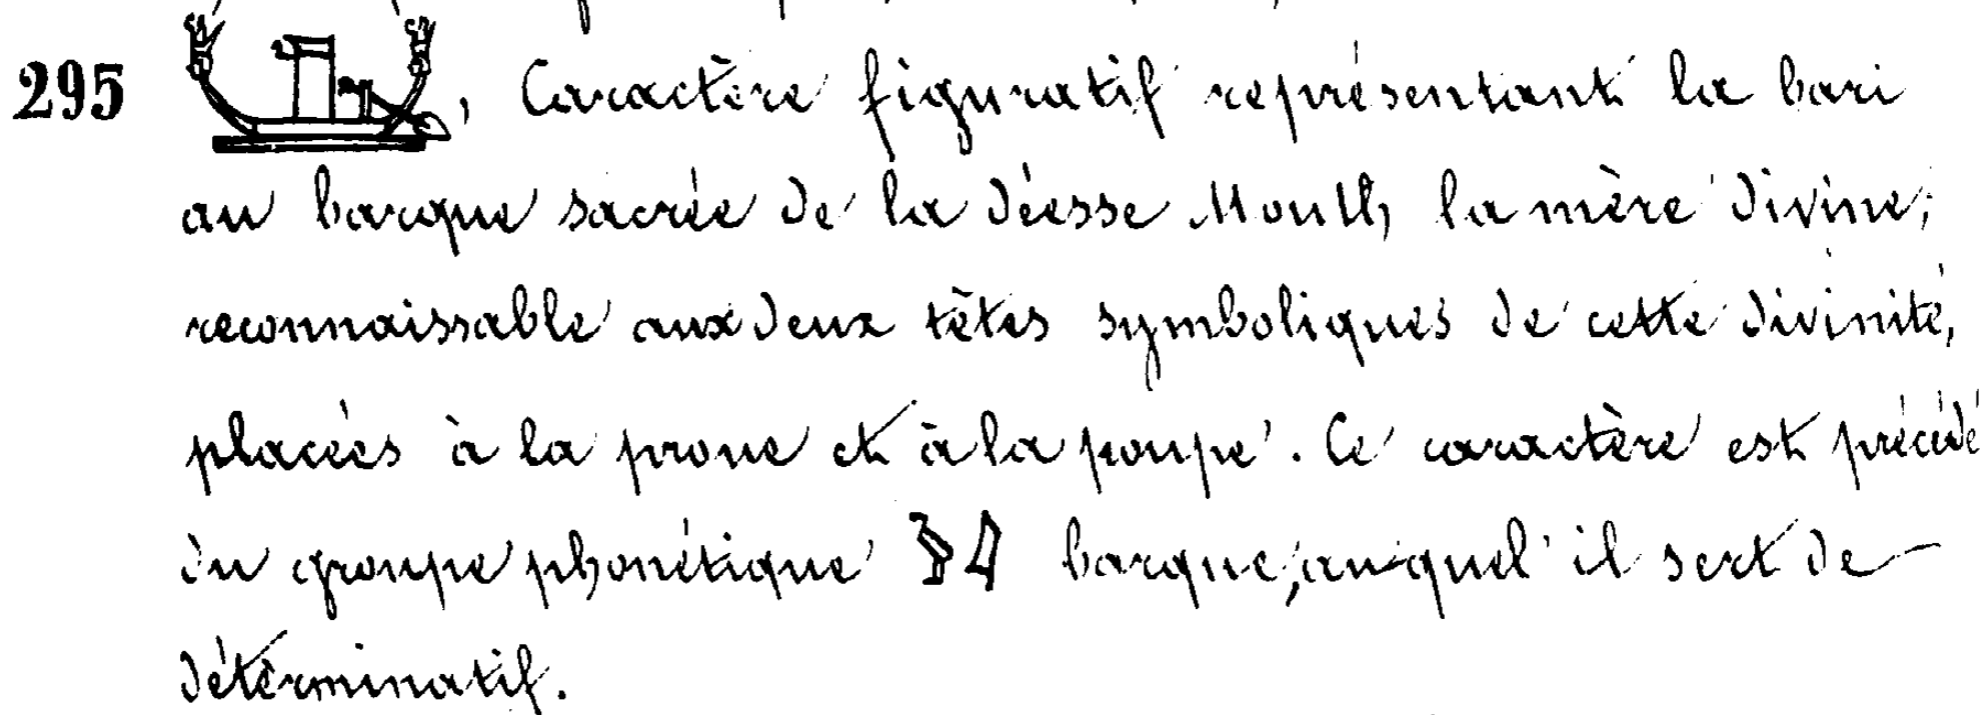 295 , Caractère figuratif représentant la bari
au barque sacrée de la déesse Mouth, la mère divine;
reconnaissable aux deux têtes symboliques de cette divinité,
placées à la proue et à la poupe. Ce caractère est précédé
du groupe phonétique barque, auquel il sert de
déterminatif.